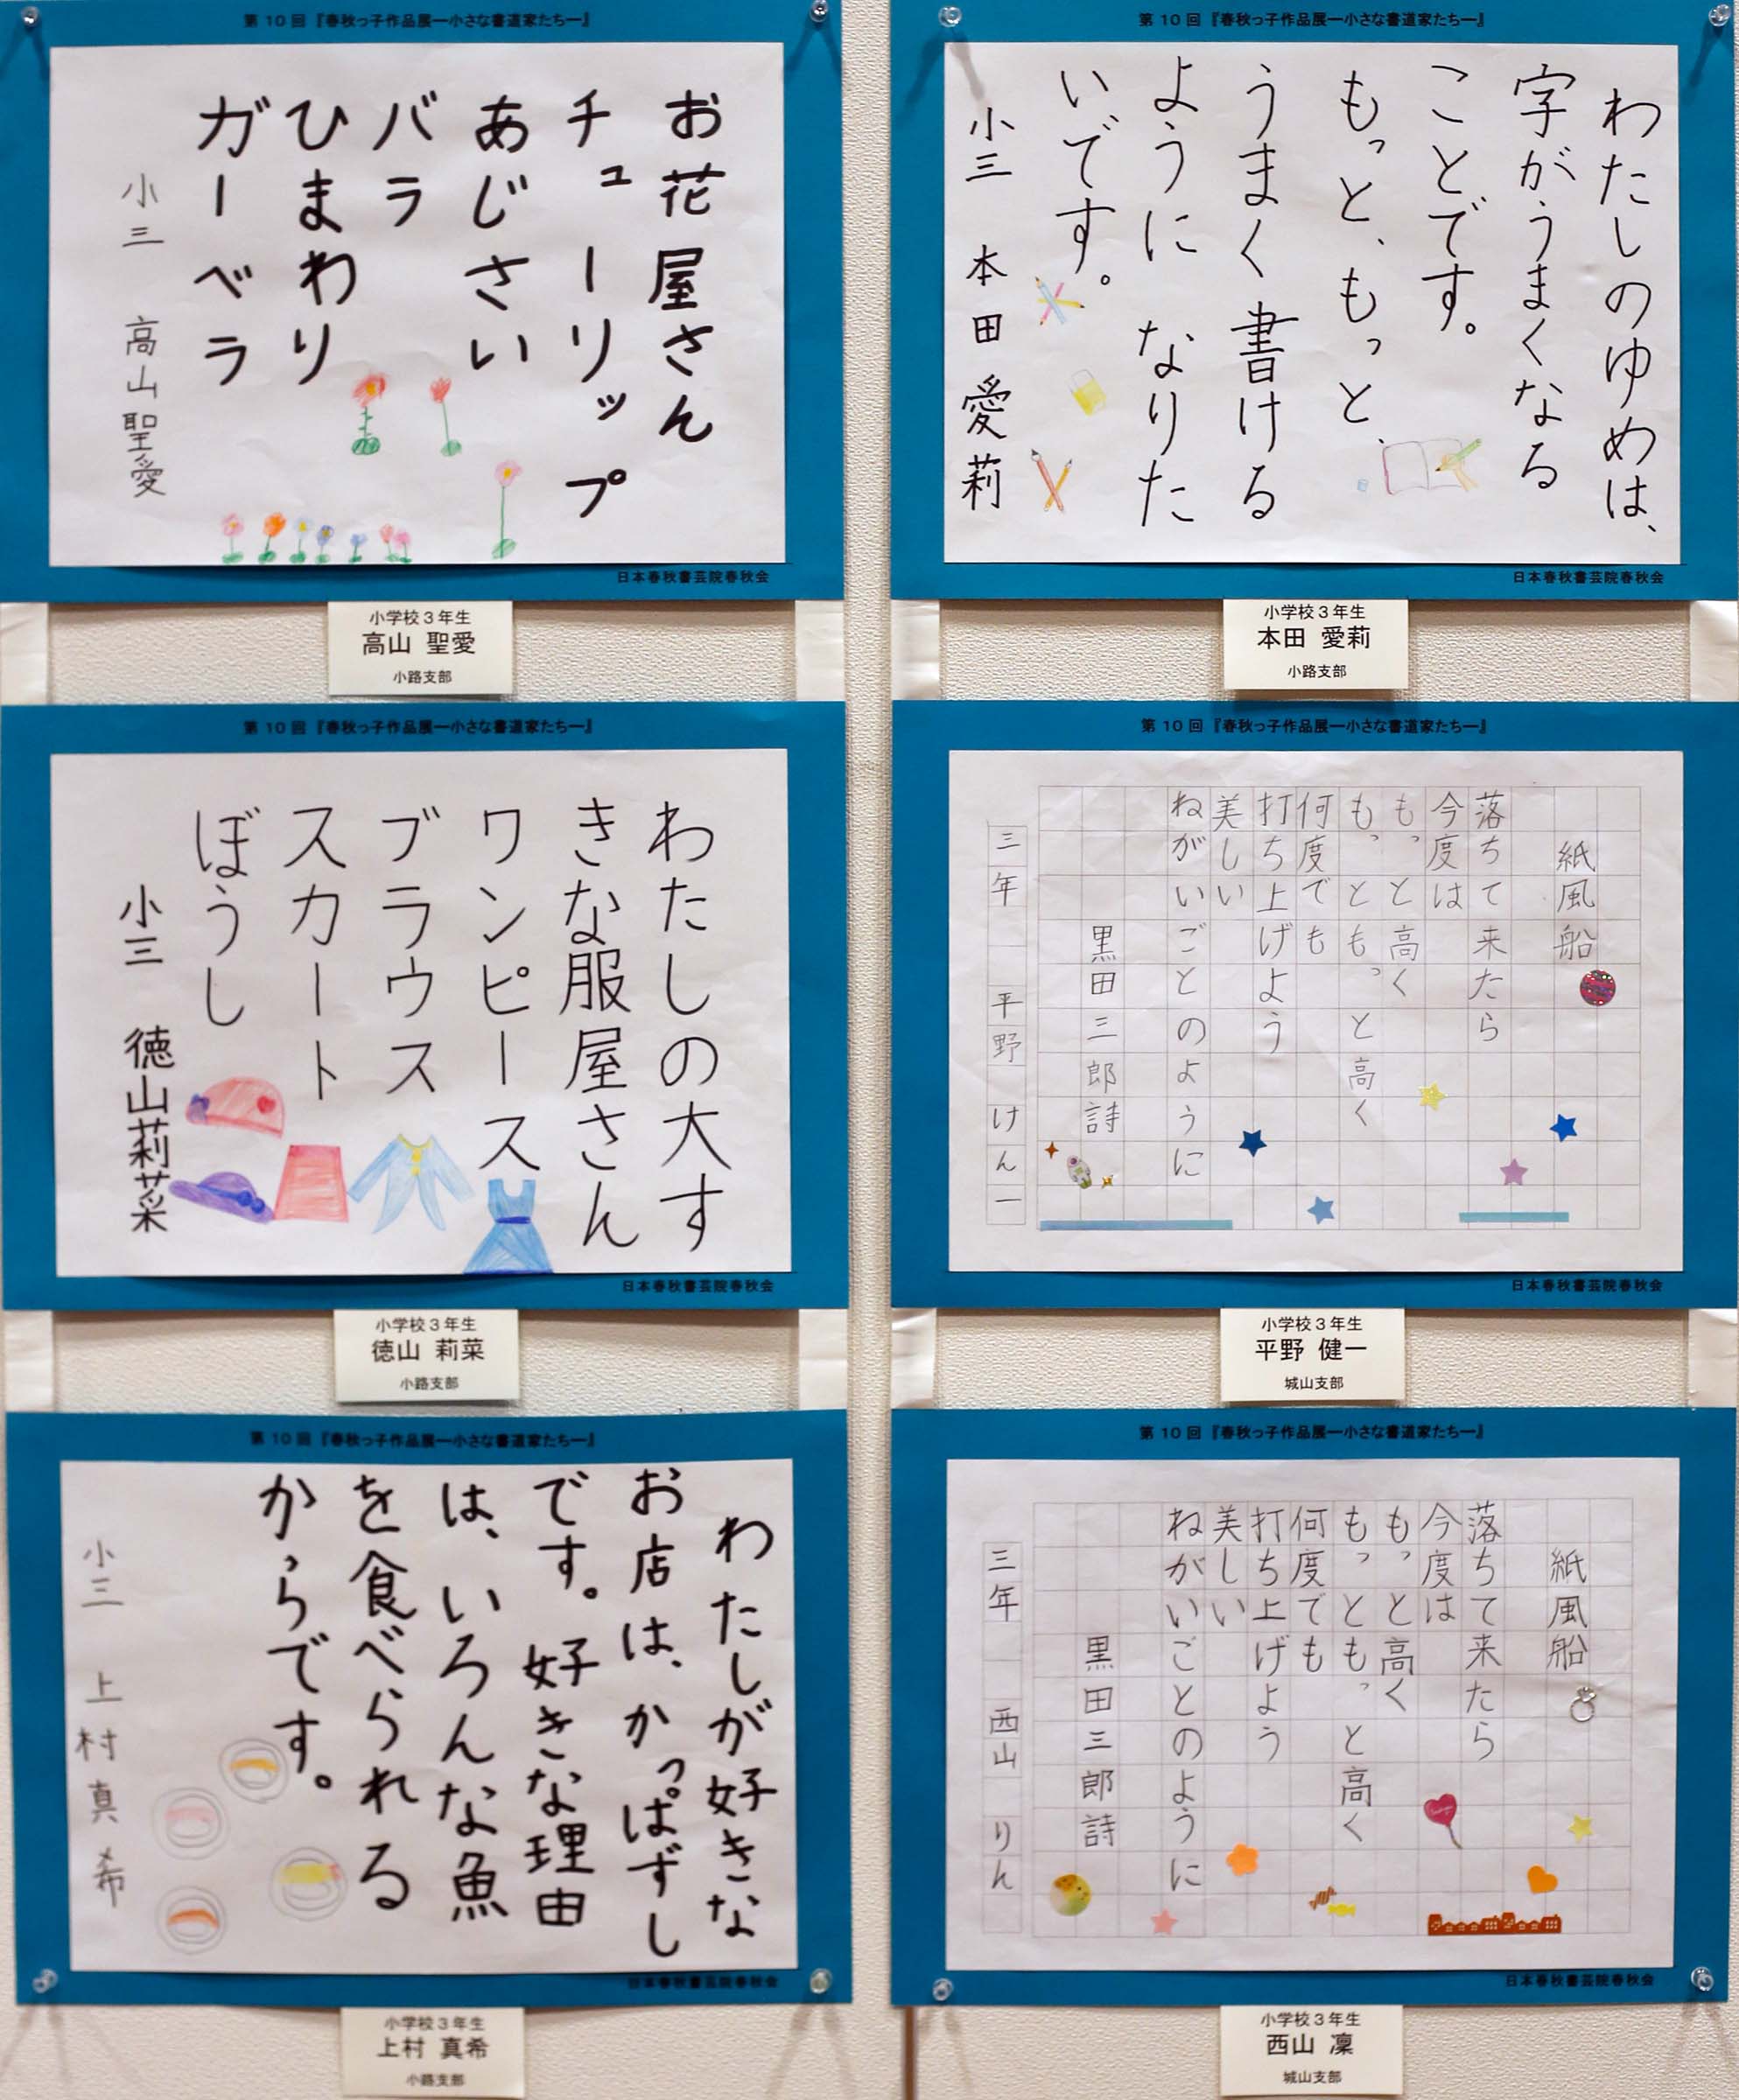 第10回『春秋っ子作品展―小さな書道家たち―』
お花屋さん
チューリップ
あじさい
バラ
ひまわり
ガーベラ
小三 高山聖愛
日本春秋書芸院春秋会
小学校3年生
高山 聖愛
小路支部
第10回『春秋っ子作品展―小さな書道家たち―』
わたしのゆめは、
字がうまくなる
ことです。
もっと、もっと、
うまく書ける
ように なりた
いです。
小三 本田愛莉
日本春秋書芸院春秋会
小学校3年生
本田 愛莉
小路支部
第10回『春秋っ子作品展―小さな書道家たち―』
わたしの大す
きな服屋さん
ワンピース
ブラウス
スカート
ぼうし
小三 徳山莉菜
日本春秋書芸院春秋会
小学校3年生
徳山 莉菜
小路支部
第10回『春秋っ子作品展―小さな書道家たち―』
紙風船
落ちて来たら
今度は
もっと高く
もっともっと高く
何度でも
打ち上げよう
美しい
ねがいごとのように
黒田三郎詩
三年 平野けん一
日本春秋書芸院春秋会
小学校3年生
平野 健一
城山支部
第10回『春秋っ子作品展―小さな書道家たち―』
わたしが好きな
お店は、かっぱずし
です。好きな理由
は、いろんな魚
を食べられる
からです。
小三 上村真希
日本春秋書芸院春秋会
小学校3年生
上村 真希
小路支部
第10回『春秋っ子作品展―小さな書道家たち―』
紙風船
落ちて来たら
今度は
もっと高く
もっともっと高く
何度でも
打ち上げよう
美しい
ねがいごとのように
黒田三郎詩
三年 西山りん
日本春秋書芸院春秋会
小学校3年生
西山 凜
城山支部